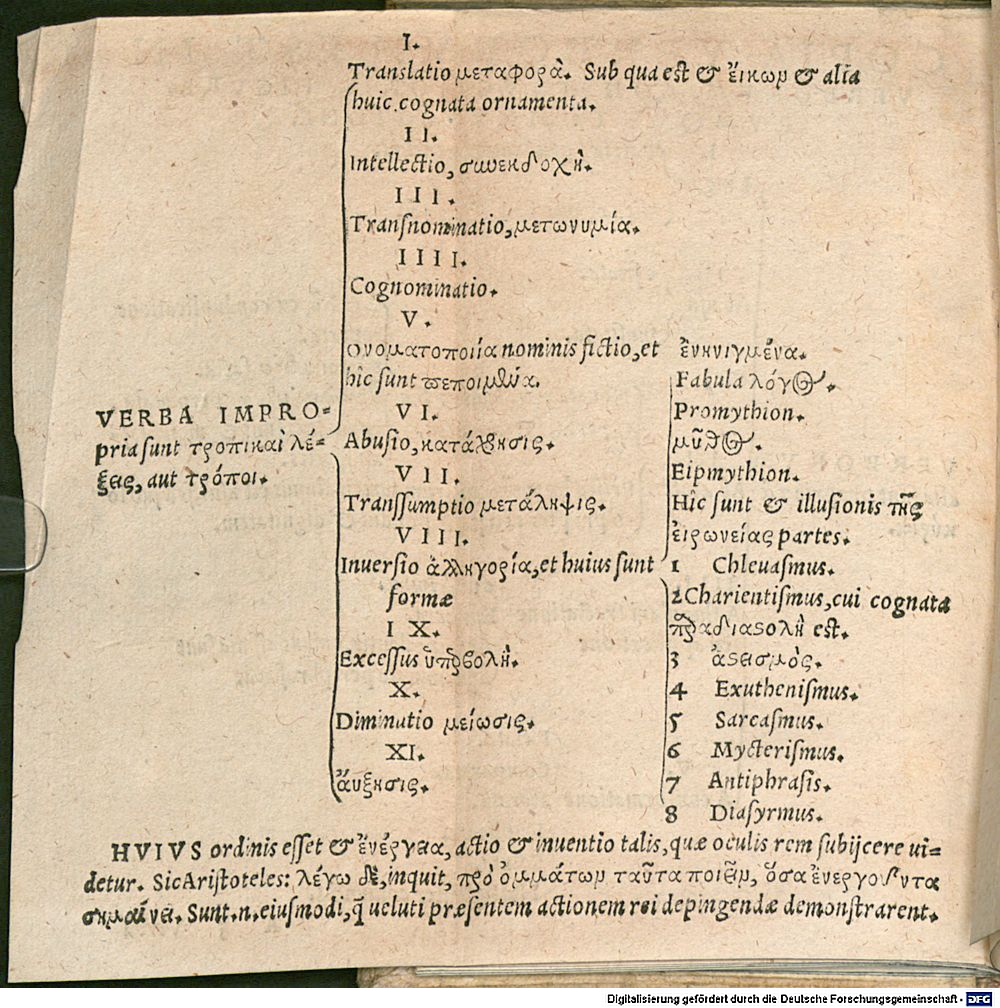 VERBA IMPRO-
pria sunt τροπικαὶ λέ-
ξεις, aut τρόποι.
I.
Translatio μεταφορὰ. Sub qua est & ἔικωρ & alia
huic cognata ornamenta.
II.
Intellectio, συνεκδοχὴ.
III.
Transnominatio, μετωνυμία.
IIII.
Cognominatio.
V.
ονοματοποιία nominis fictio, et
hic sunt πεποιημένα.
VI.
Abusio, κατάχρησις.
VII.
Transsumptio μετάληψις.
VIII.
Inversio ἀλληγορία, et huius sunt
formæ
IX.
Excessus ὑπερβολὴ.
X.
Diminutio μείωσις.
XI.
ἄυξησις.
ἐνηνιγμένα.
Fabula λόγος.
Promythion.
μῦθος.
Eipmythion.
Hic sunt & illusionis τῆς
εἰρωνείας partes.
1 Chleuasmus.
2 Charientismus, cui cognata
παραδιαστολὴ est.
3 ἀστεισμὸς.
4 Exuthenismus.
5 Sarcasmus.
6 Mycterismus.
7 Antiphrasis.
8 Diasyrmus.
HVIVS ordinis esset & ἐνέργεια, actio & inuentio talis, quæ oculis rem subijcere ui=
detur. Sic Aristoteles: λέγω δὲ, inquit, πρὸ ὀμμάτωρ ταῦτα ποιεῖν, ὅσα ἐνεργοῦντα
σημαίνει. Sunt.n.eiusmodi, q̃ ueluti præsentem actionem rei depingendæ demonstrarent.
Digitalisierung gefördert durch die Deutsche Forschungsgemeinschaft - DFG